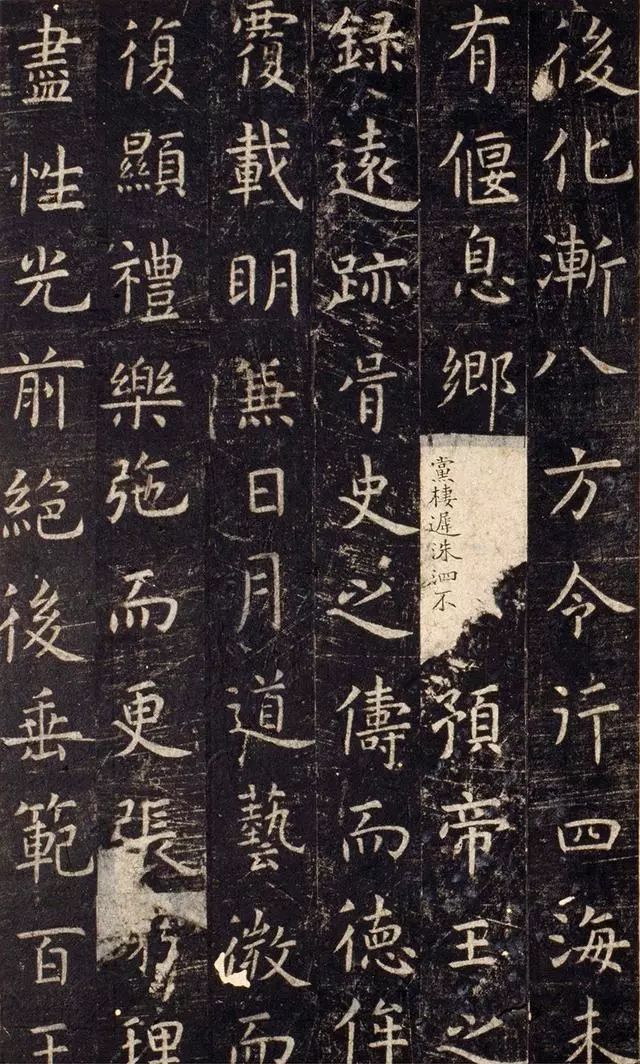 後化漸八方令行四海未
有偃息鄉
黨棲遲洙泗不
預帝王之
録遠跡胥史之儔而德侔
覆載明兼日月道藝微而
復顯禮樂弛而更張窮理
盡性光前絶後垂範百王